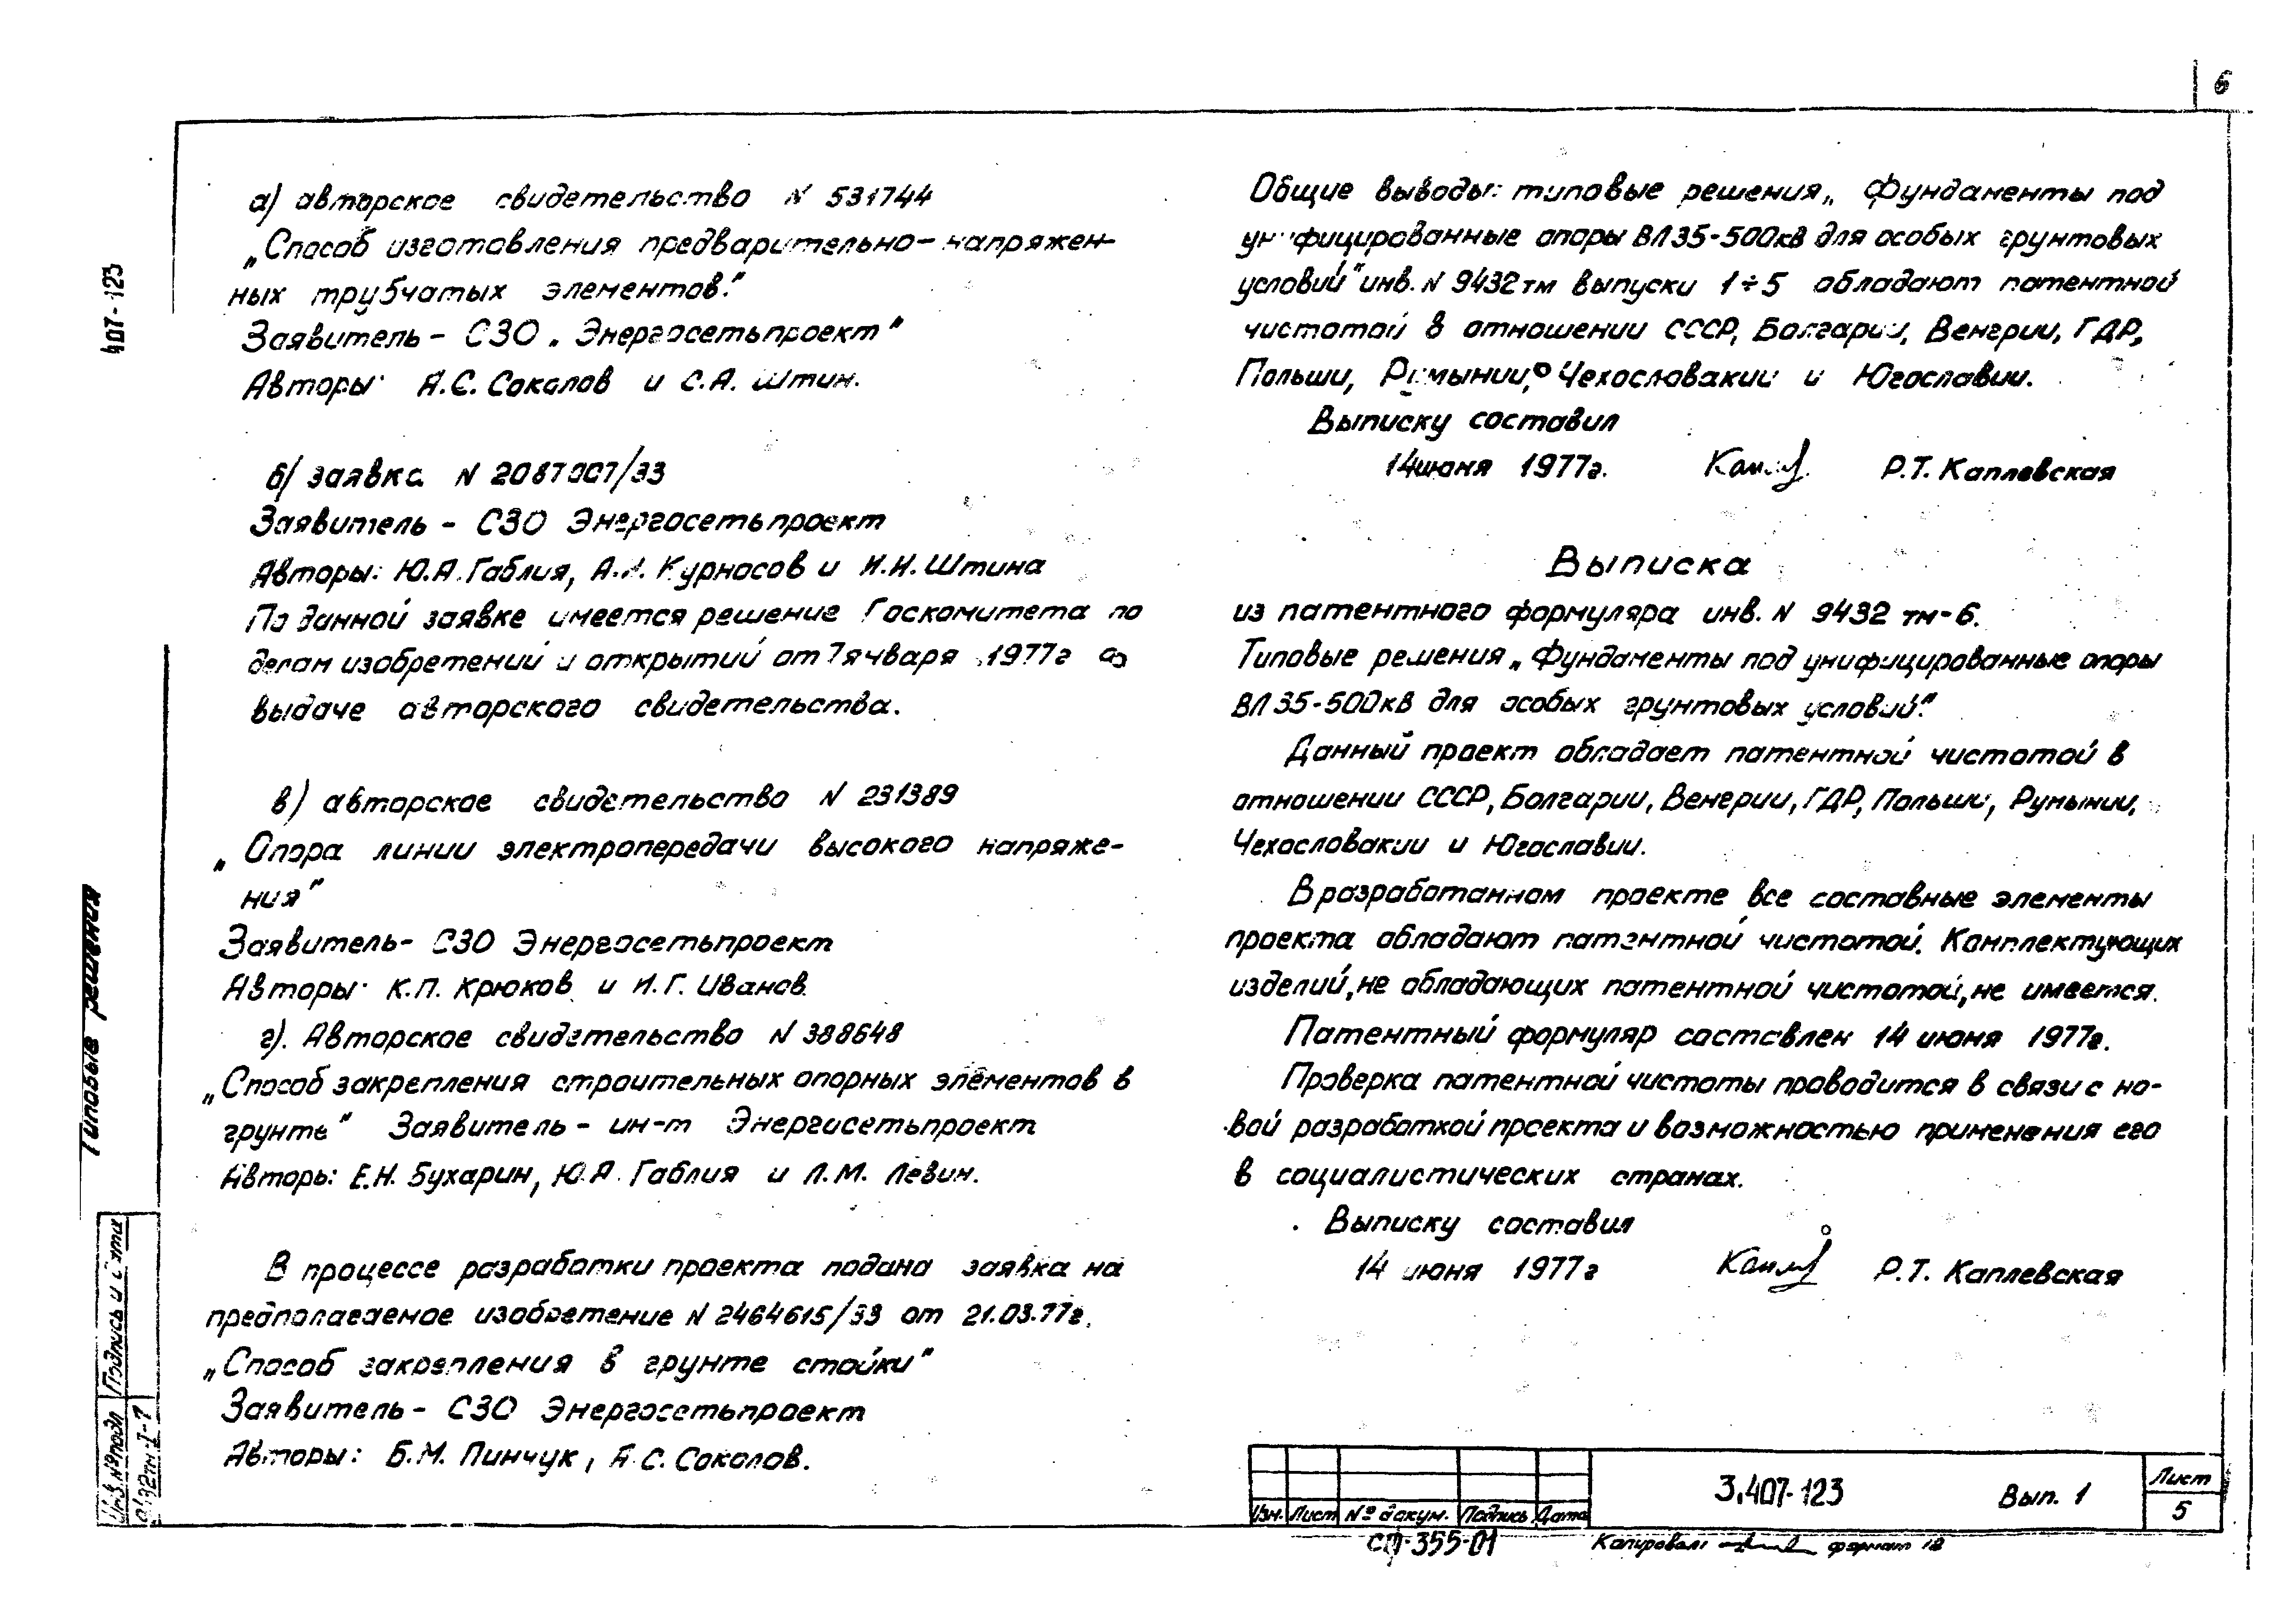 6
а) авторское свидетельство N 531744
„Способ изготовления предварительно-напряжен-
ных трубчатых элементов."
Заявитель - СЗО „Энергосетьпроект"
Авторы: А.С. Соколов и С.А. Штин.
б) заявка N 2087007/33
Заявитель - СЗО Энергосетьпроект
Авторы: Ю.А. Габлия, А.И. Курносов и И.И. Штина
По данной заявке имеется решение Госкомитета по
делам изобретений и открытий от 7 января 1977г о
выдаче авторского свидетельства.
в) авторское свидетельство N 231389
„Опора линии электропередачи высокого напряже-
ния"
Заявитель - СЗО Энергосетьпроект
Авторы: К.П. Крюков и И.Г. Иванов.
г). Авторское свидетельство N 388648
„Способ закрепления строительных опорных элементов в
грунте" Заявитель - ин-т Энергосетьпроект
Авторы: Е.Н. Бухарин, Ю.А. Габлия и Л.М. Левин.
В процессе разработки проекта подана заявка на
предполагаемое изобретение N 2464615/33 от 21.03.77г.
„Способ закрепления в грунте стойки"
Заявитель - СЗО Энергосетьпроект
Авторы: Б.М. Пинчук, А.С. Соколов.
Общие выводы: типовые решения „Фундаменты под
унифицированные опоры ВЛ 35-500кВ для особых грунтовых
условий" инв. N 9432тм выпуски 1÷5 обладают патентной
чистотой в отношении СССР, Болгарии, Венгрии, ГДР,
Польши, Румынии, Чехословакии и Югославии.
Выписку составил
14 июня 1977г. Р.Т. Каплевская
Выписка
из патентного формуляра инв. N 9432 тм-6.
Типовые решения „Фундаменты под унифицированные опоры
ВЛ 35-500кВ для особых грунтовых условий."
Данный проект обладает патентной чистотой в
отношении СССР, Болгарии, Венгрии, ГДР, Польши, Румынии,
Чехословакии и Югославии.
В разработанном проекте все составные элементы
проекта обладают патентной чистотой. Комплектующих
изделий, не обладающих патентной чистотой, не имеется.
Патентный формуляр составлен 14 июня 1977г.
Проверка патентной чистоты проводится в связи с но-
вой разработкой проекта и возможностью применения его
в социалистических странах.
Выписку составил
14 июня 1977г Р.Т. Каплевская
407-123
Типовые решения
Подпись и дата
Инв. № подл
Изм. Лист № докум. Подпись Дата
3.407-123 Вып. 1
Лист
5
СФ-355-01
Копировал: формат 12